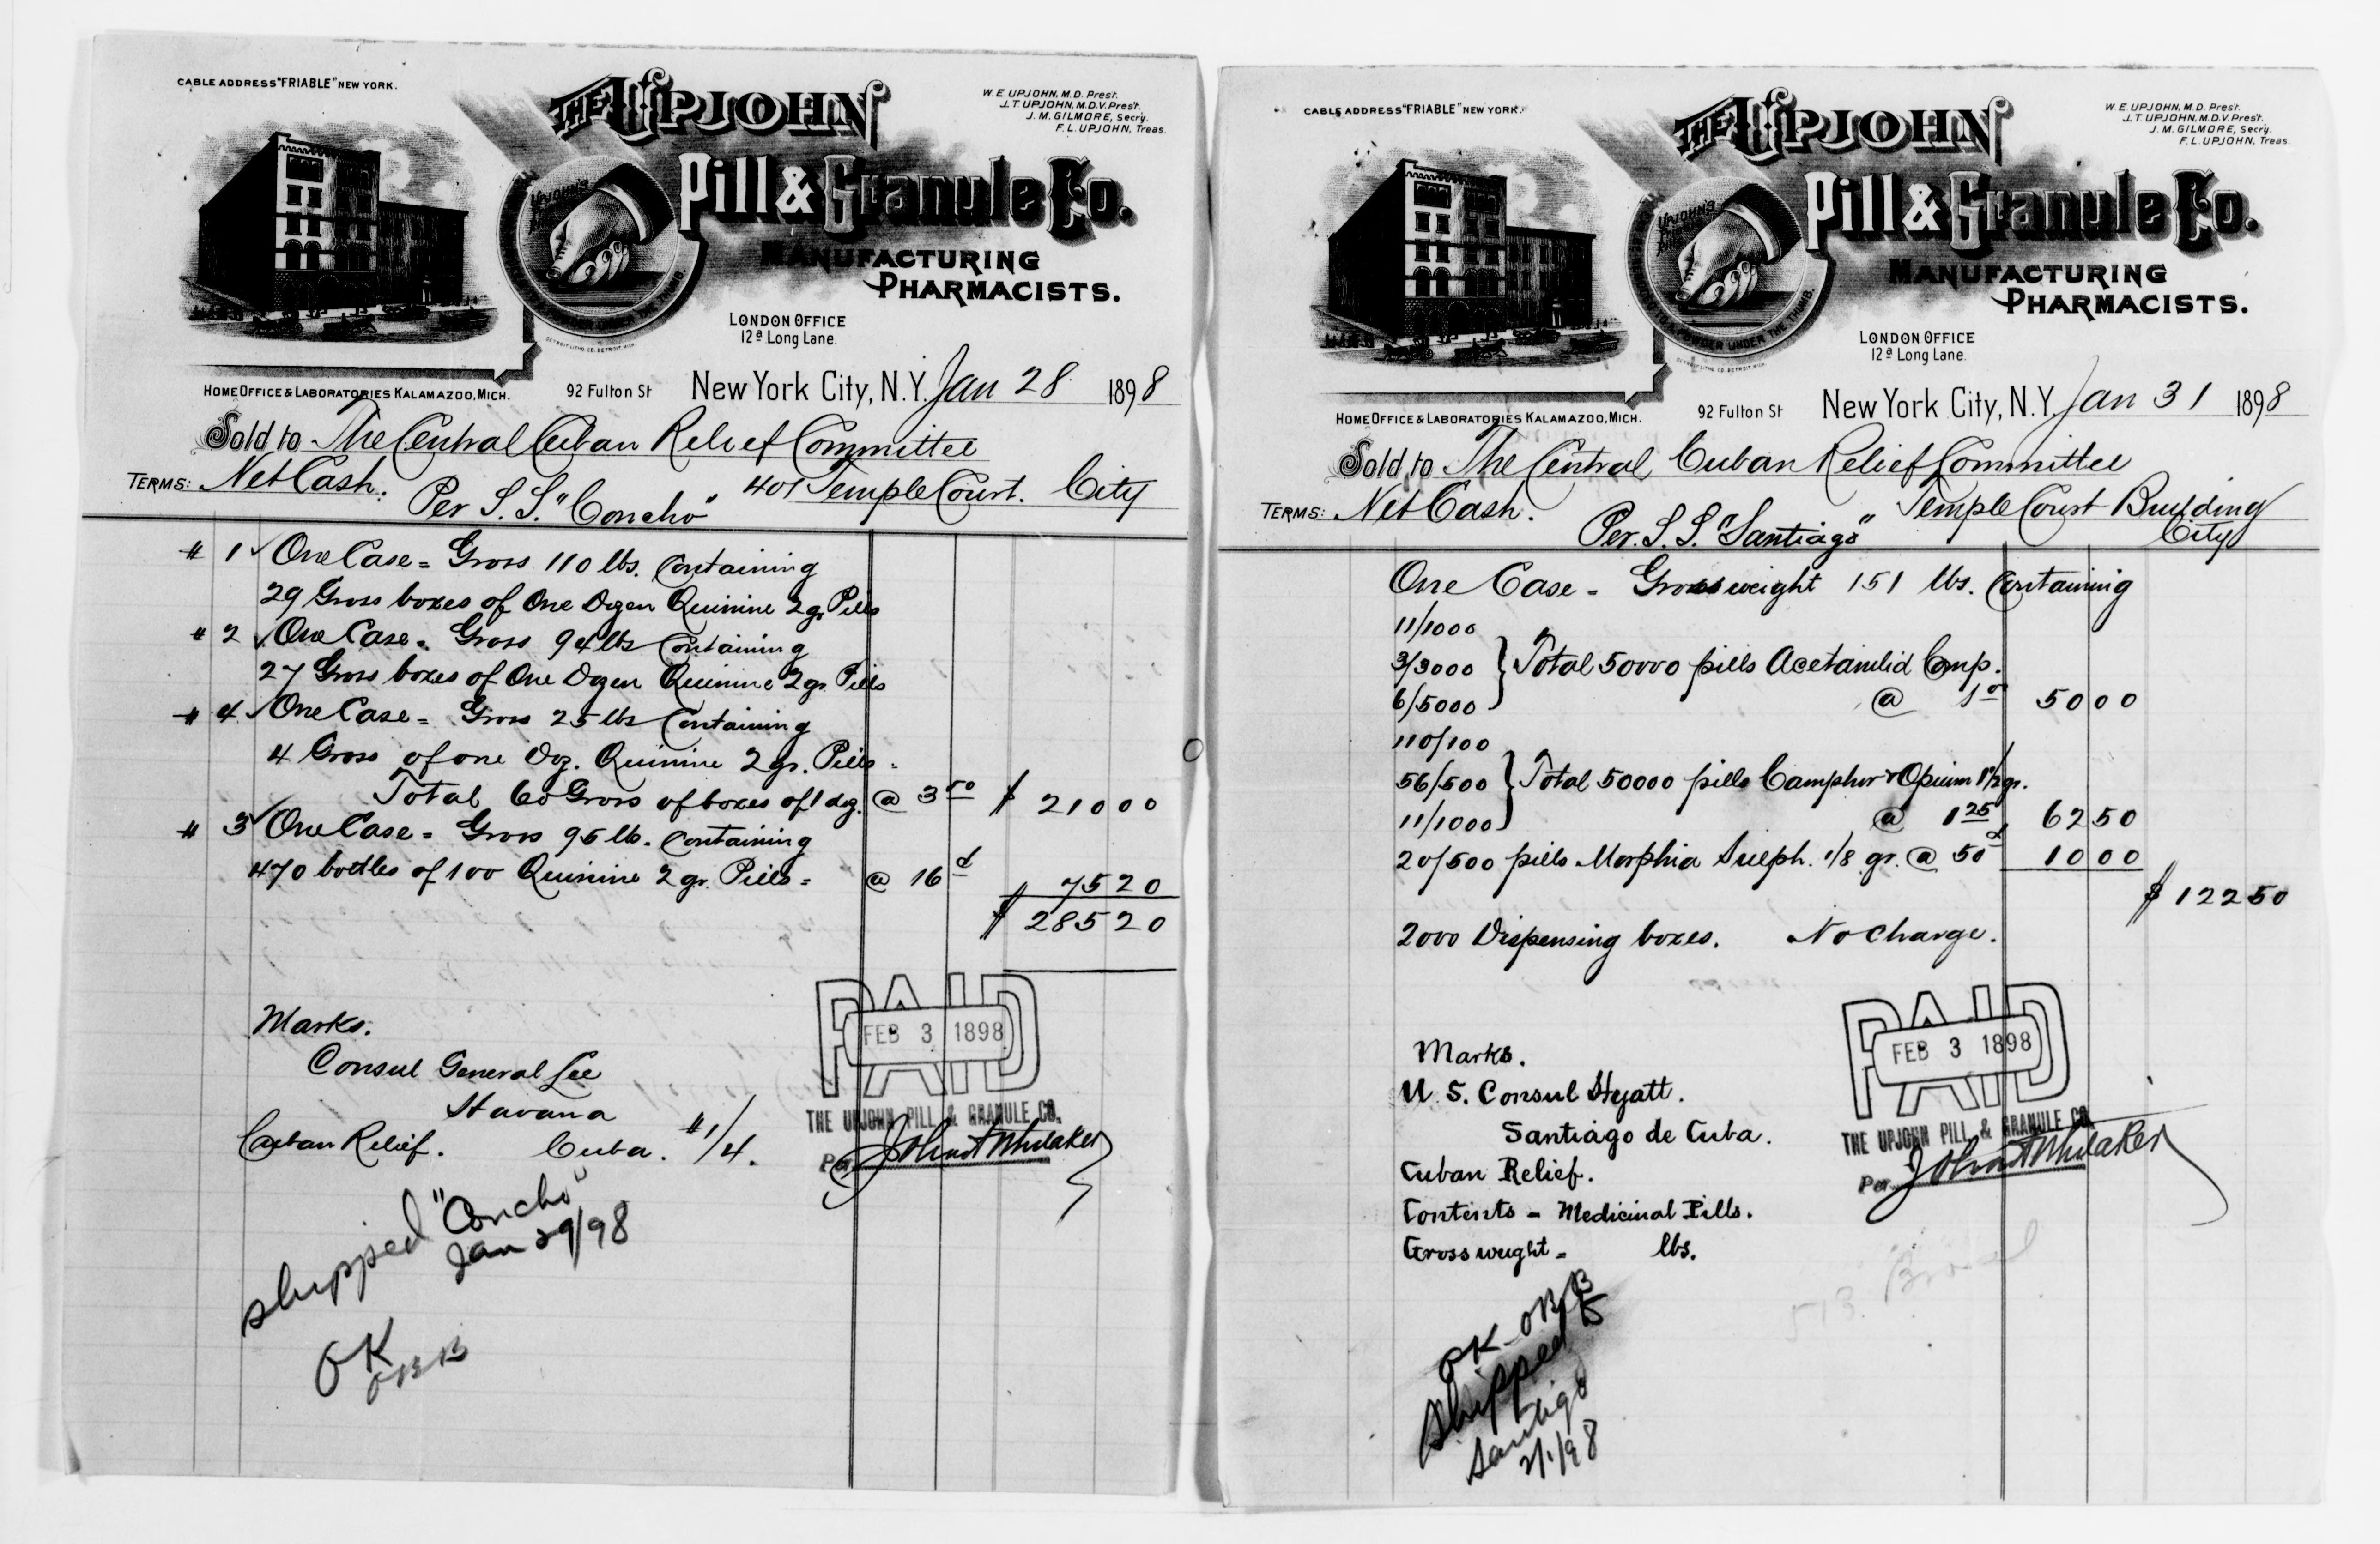 CABLE ADDRESS "FRIABLE" NEW YORK.
THE UPJOHN
Pill & Granule Co.
MANUFACTURING
PHARMACISTS.
W. E. UPJOHN, M.D. Prest.
J. T. UPJOHN, M.D. V. Prest.
J. M. GILMORE, Secry.
F. L. UPJOHN, Treas.
UPJOHN'S
UNDER THE THUMB.
LONDON OFFICE
12a Long Lane.
HOME OFFICE & LABORATORIES KALAMAZOO, MICH.
92 Fulton St New York City, N.Y. Jan 28 1898
Sold to The Central Cuban Relief Committee
TERMS: Net Cash. 401 Temple Court. City
Per S.S. "Concho"
# 1 ✓ One Case = Gross 110 lbs. Containing
29 Gross boxes of One Dozen Quinine 2 gr. Pills
# 2 ✓ One Case = Gross 94 lbs Containing
27 Gross boxes of One Dozen Quinine 2 gr. Pills
# 4 ✓ One Case = Gross 25 lbs Containing
4 Gross of one Doz. Quinine 2 gr. Pills -
Total 60 Gross of boxes of 1 doz. @ 3 50 $ 210 00
# 3 ✓ One Case = Gross 95 lb. Containing
470 bottles of 100 Quinine 2 gr. Pills = @ 16 ¢ 75 20
$ 285 20
PAID
FEB 3 1898
THE UPJOHN PILL & GRANULE CO.
Per John A Whitaker
Marks.
Consul General Lee
Havana
Cuban Relief. Cuba. #1/4.
shipped "Concho"
Jan 29/98
OK
OBB
CABLE ADDRESS "FRIABLE" NEW YORK.
THE UPJOHN
Pill & Granule Co.
MANUFACTURING
PHARMACISTS.
W. E. UPJOHN, M.D. Prest.
J. T. UPJOHN, M.D. V. Prest.
J. M. GILMORE, Secry.
F. L. UPJOHN, Treas.
UPJOHN'S
POWDER UNDER THE THUMB.
LONDON OFFICE
12a Long Lane.
HOME OFFICE & LABORATORIES KALAMAZOO, MICH.
92 Fulton St New York City, N.Y. Jan 31 1898
Sold to The Central Cuban Relief Committee
TERMS: Net Cash. Temple Court Building
Per. S.S. "Santiago" City
One Case - Gross weight 151 lbs. Containing
11/1000
3/3000 } Total 50000 pills Acetanilid Comp.
6/5000 @ 1 00 50 00
110/100
56/500 } Total 50000 pills Camphor & Opium 1 1/2 gr.
11/1000 @ 1 25 62 50
20/500 pills Morphia Sulph. 1/8 gr. @ 50 ¢ 10 00
$ 122 50
2000 Dispensing boxes. No Charge.
PAID
FEB 3 1898
THE UPJOHN PILL & GRANULE CO.
Per John A Whitaker
Marks.
U.S. Consul Hyatt.
Santiago de Cuba.
Cuban Relief.
Contents - Medicinal Pills.
Gross weight - lbs.
OK-OBB
Shipped
Santiago
2/1/98